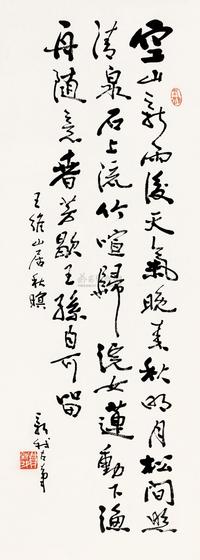 空山新雨後天氣晚來秋明月松間照
清泉石上流竹喧歸浣女蓮動下漁
舟隨意春芳歇王孫自可留
王維山居秋暝
新我左筆